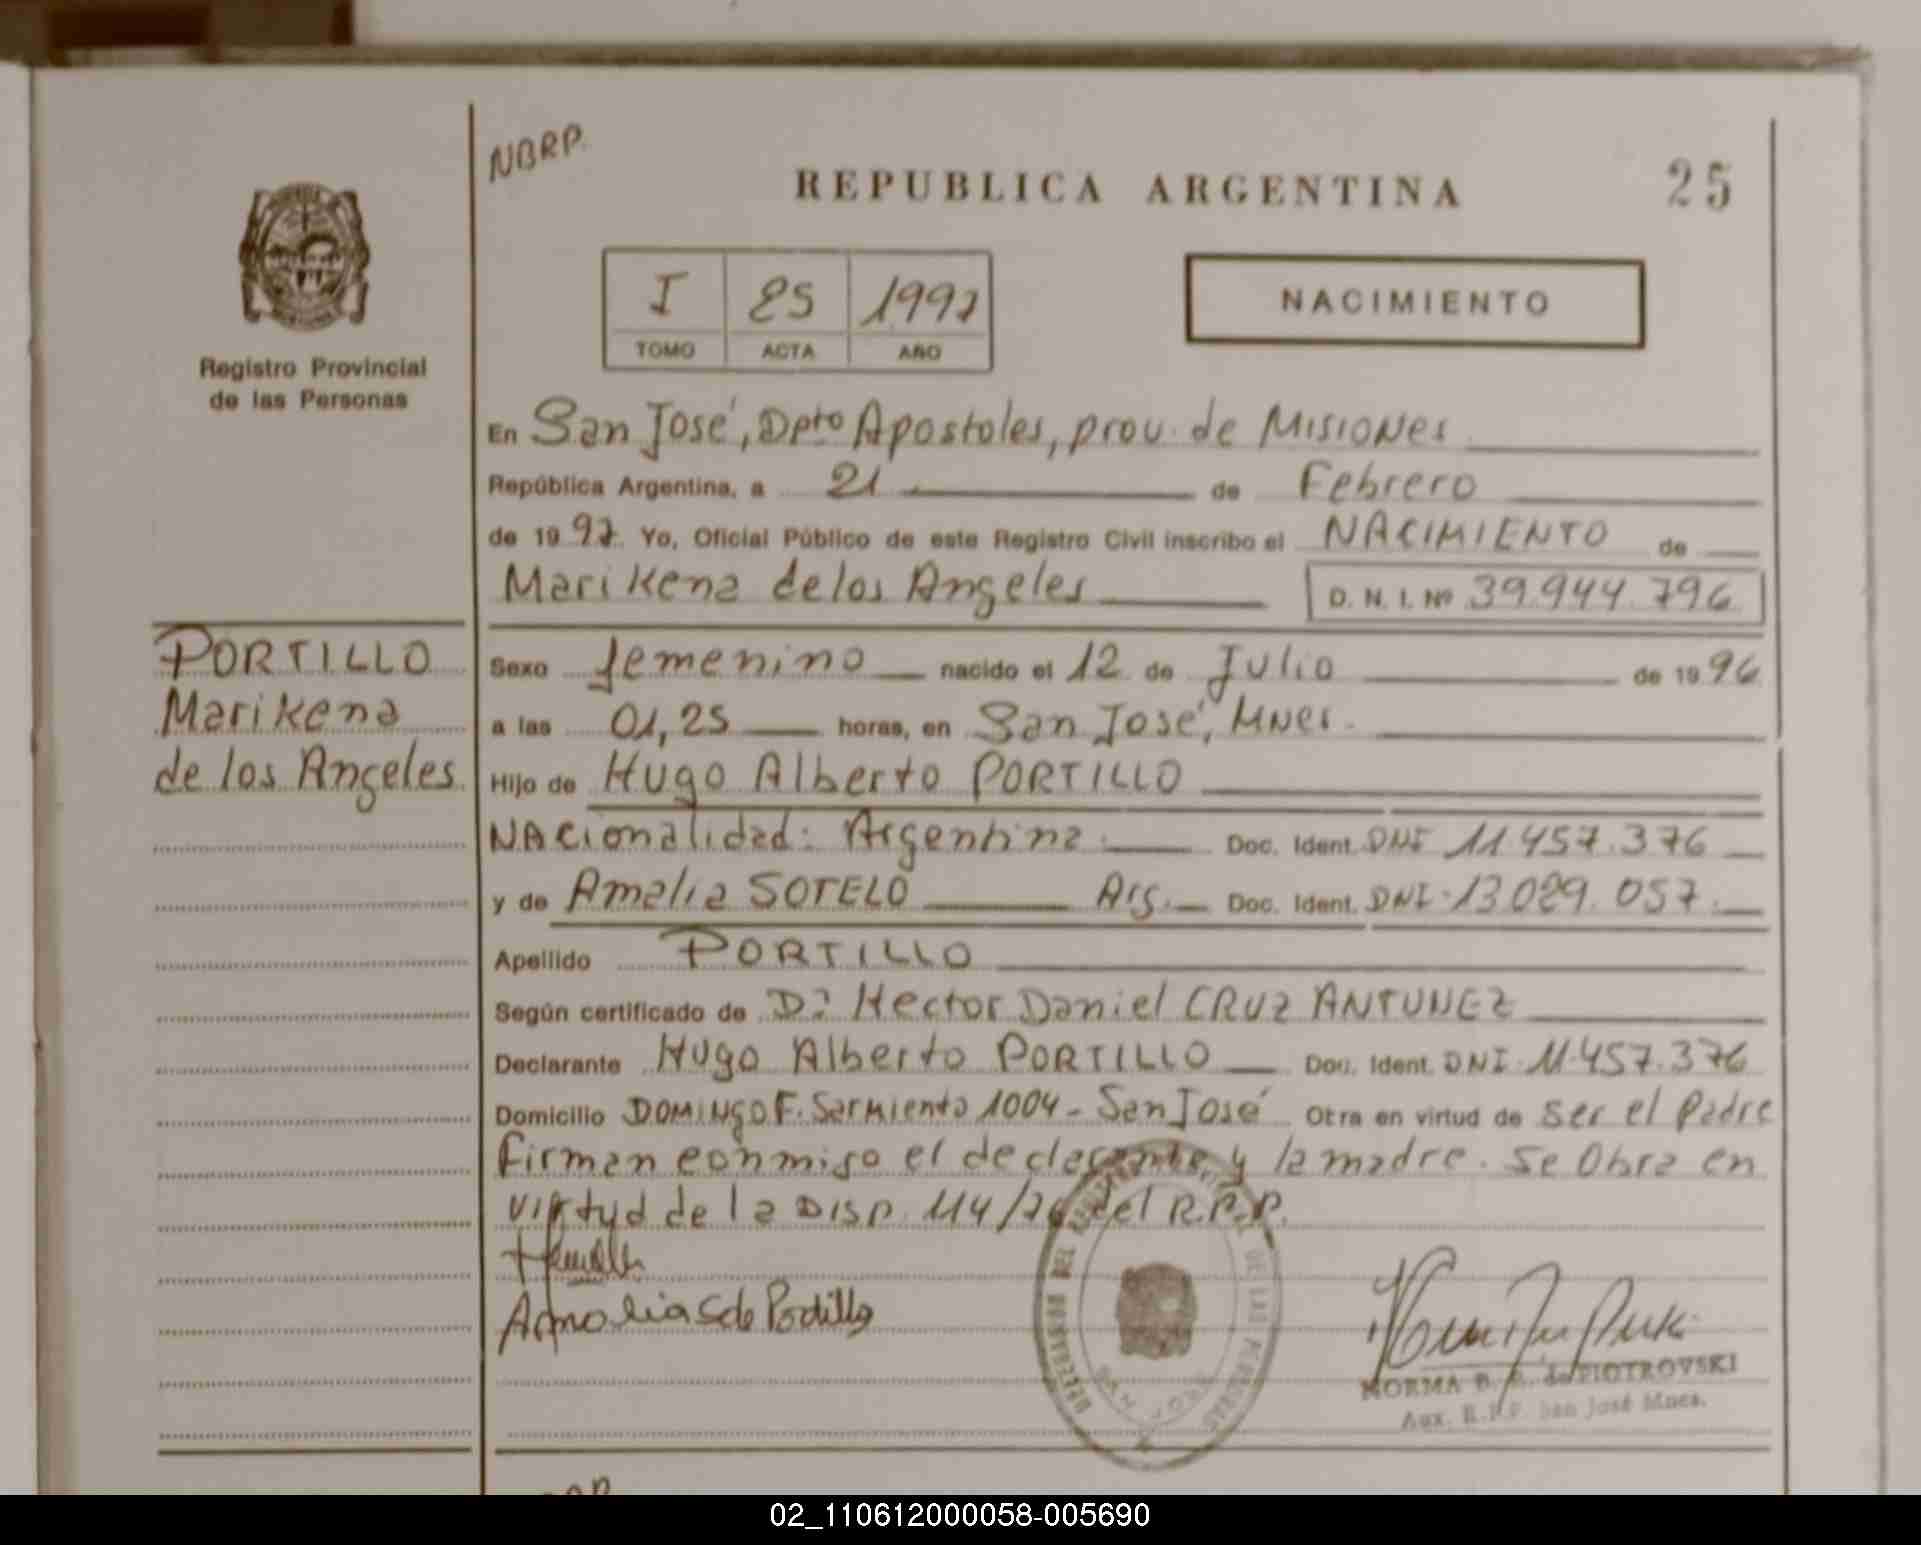 NBRP.
REPUBLICA ARGENTINA
25
I 25 1997
TOMO ACTA AÑO
NACIMIENTO
Registro Provincial
de las Personas
En San José, Dpto Apostoles, prov. de Misiones
República Argentina, a 21 de Febrero
de 1997. Yo, Oficial Público de este Registro Civil inscribo el NACIMIENTO de
Marikena de los Angeles D. N. I. Nº 39.944.796
PORTILLO
Marikena
de los Angeles
Sexo femenino nacido el 12 de Julio de 1996
a las 01,25 horas, en San José, Mnes.
Hijo de Hugo Alberto PORTILLO
Nacionalidad: Argentina. Doc. Ident. DNI 11.457.376
y de Amalia SOTELO Arg. Doc. Ident. DNI-13.029.057.
Apellido PORTILLO
Según certificado de Dr Hector Daniel CRUZ ANTUNEZ
Declarante Hugo Alberto PORTILLO Doc. Ident. DNI-11.457.376
Domicilio DOMINGO F. Sarmiento 1004 - San José Otra en virtud de ser el Padre
firman conmigo el declarante y la madre. Se Obra en
virtud de la DISP. 114/76 del R.P.P.
Amalia S de Portillo
SAN JOSE
NORMA B. de PIOTROVSKI
Aux. R.P.P. San José Mnes.
02_110612000058-005690